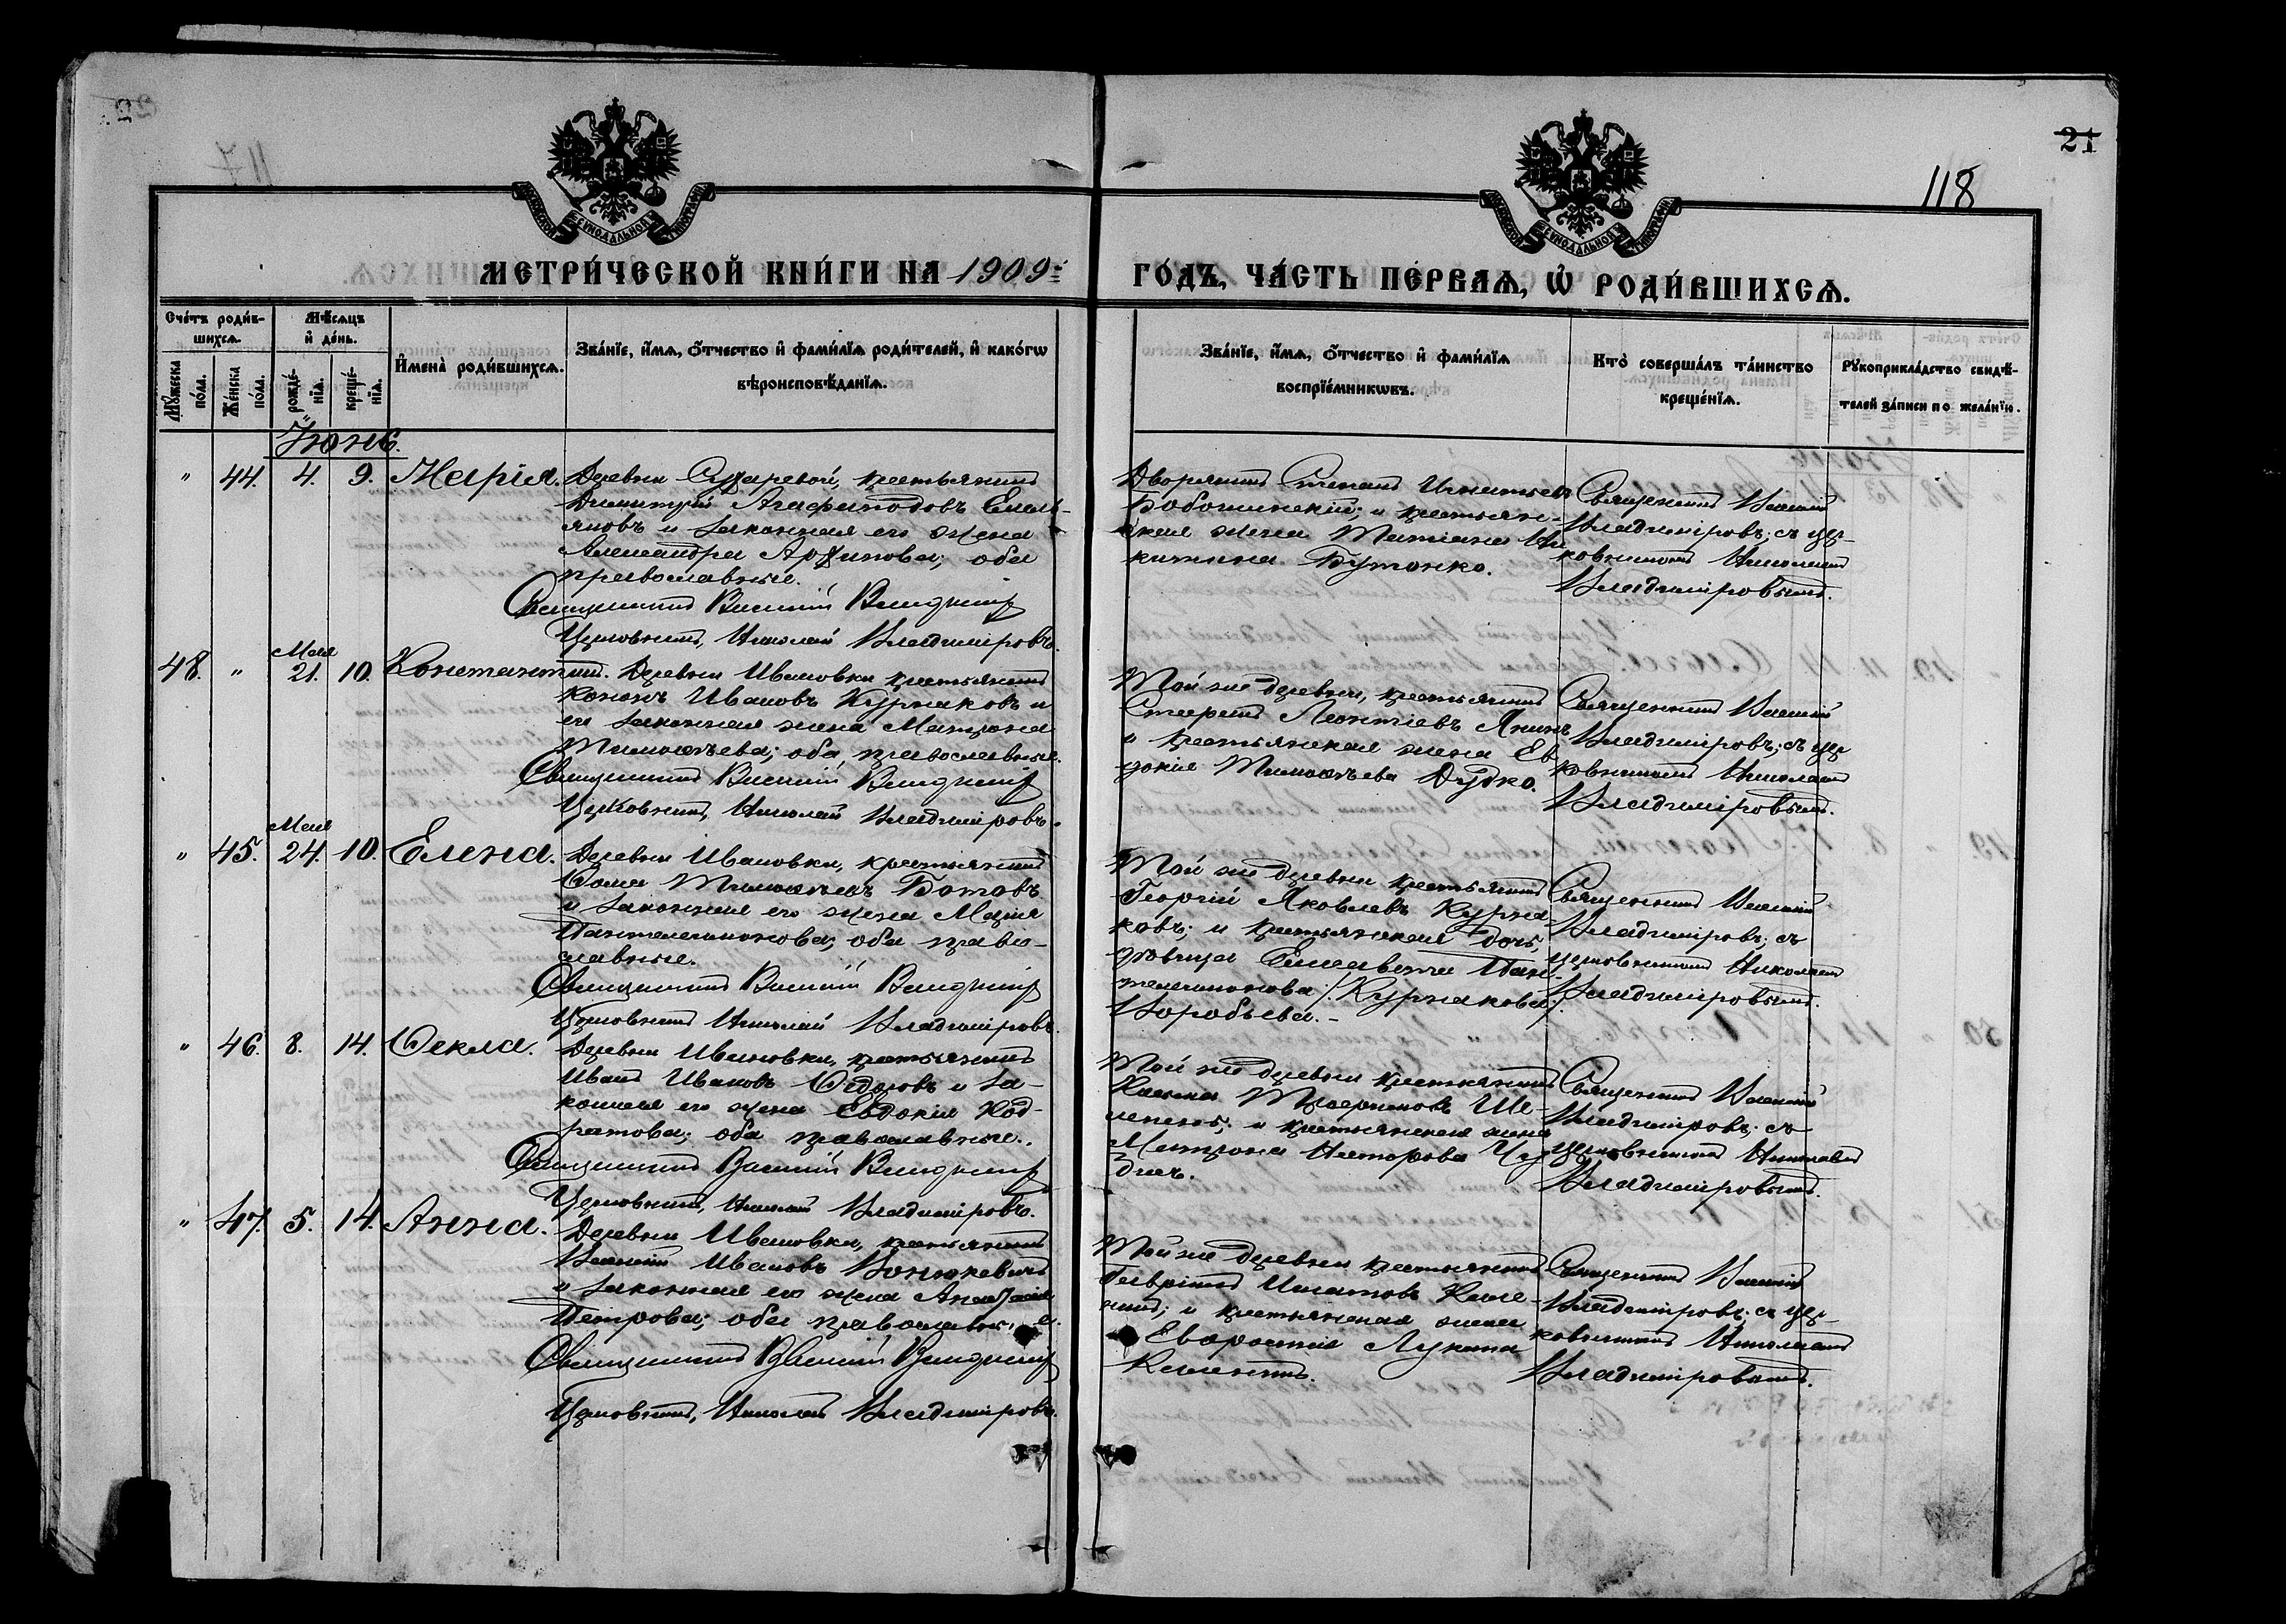 21
118
МЕТРИ́ЧЕСКОЙ КНИ́ГИ НА 1909:
ГО́ДЪ, ЧА́СТЬ ПЕ́РВАѦ, Ѡ҆ РОДИ́ВШИХСѦ.
Сче́тъ роди́в-
шихсѧ.
Мꙋ́жеска по́ла.
Же́нска по́ла.
Мѣ́сѧцъ
и҆ де́нь.
рожде́-нїѧ.
креще́-нїѧ.
И҆мена̀ роди́вшихсѧ.
Зва́нїе, и҆́мѧ, ѻ҆́тчество и҆ фами́лїѧ роди́телей, и҆ како́гѡ
вѣроисповѣ́данїѧ.
Зва́нїе, и҆́мѧ, ѻ҆́тчество и҆ фами́лїѧ
воспрїе́мникѡвъ.
Кто̀ соверша́лъ та́инство
креще́нїѧ.
Рꙋкоприкла́дство свидѣ́-
телей за́писи по жела́нїю.
Іюнь.
" 44. 4. 9. Марія.
Деревни крестьянинъ
Димитрій Агафоподовъ Емель-
яновъ и законная его жена
Александра оба
православные.
Священникъ Василій Владиміровъ
Церковникъ, Николай Владиміровъ.
Дворянинъ Степанъ Игнатьевъ
и крестьян-
ская жена Татіана
Бутонко.
Священникъ Василій
Владиміровъ; съ цер-
ковникомъ Николаемъ
Владиміровымъ.
48. " Мая 21. 10. Константинъ.
Деревни Ивановки крестьянинъ
Кононъ Ивановъ Курчаковъ и
его законная жена Матрона
Тимоѳеева; оба православные.
Священникъ Василій Владиміровъ
Церковникъ, Николай Владиміровъ.
Той же деревни, крестьянинъ
Леонтіевъ
и крестьянская жена Ев
докія Тимоѳеева Дудко.
Священникъ Василій
Владиміровъ; съ цер
ковникомъ Николаемъ
Владиміровымъ.
" 45. Мая 24. 10. Елена.
Деревни Ивановки, крестьянинъ
Ѳома Тимоѳеевъ Ботовъ
и законная его жена Марія
Пантелеимонова; оба право-
славные.
Священникъ Василій Владиміровъ
Церковникъ Николай Владиміровъ.
Той же деревни крестьянинъ
Георгій Яковлевъ Курча-
ковъ; и крестьянская дочь,
дѣвица Елисавета Пан-
телеимонова /:Курчакова:/
Воробьева.-
Священникъ Василій
Владиміровъ; съ
церковникомъ Николаемъ
Владиміровымъ.
" 46. 8. 14. Ѳекла.
Деревни Ивановки, крестьянинъ
Иванъ Ивановъ Ѳедоровъ и за-
конная его жена Евдокія Код-
ратова; оба православные.
Священникъ Василій Владиміровъ
Церковникъ, Николай Владиміровъ.
Той же деревни крестьянинъ
Ше-
и крестьянская жена
Матрона Несторова
Священникъ Василій
Владиміровъ; съ
церковникомъ Николаемъ
Владиміровымъ.
" 47. 5. 14. Анна.
Деревни Ивановки, крестьянинъ
Василій Ивановъ Вонюкевичъ
и законная его жена Анастасія
Петрова; оба православные.
Священникъ Василій Владиміровъ
Церковникъ, Николай Владиміровъ.
Той же деревни крестьянинъ
Гавріилъ
и крестьянская жена
Евфросинія Лукина
Священникъ Василій
Владиміровъ; съ цер-
ковникомъ Николаемъ
Владиміровымъ.